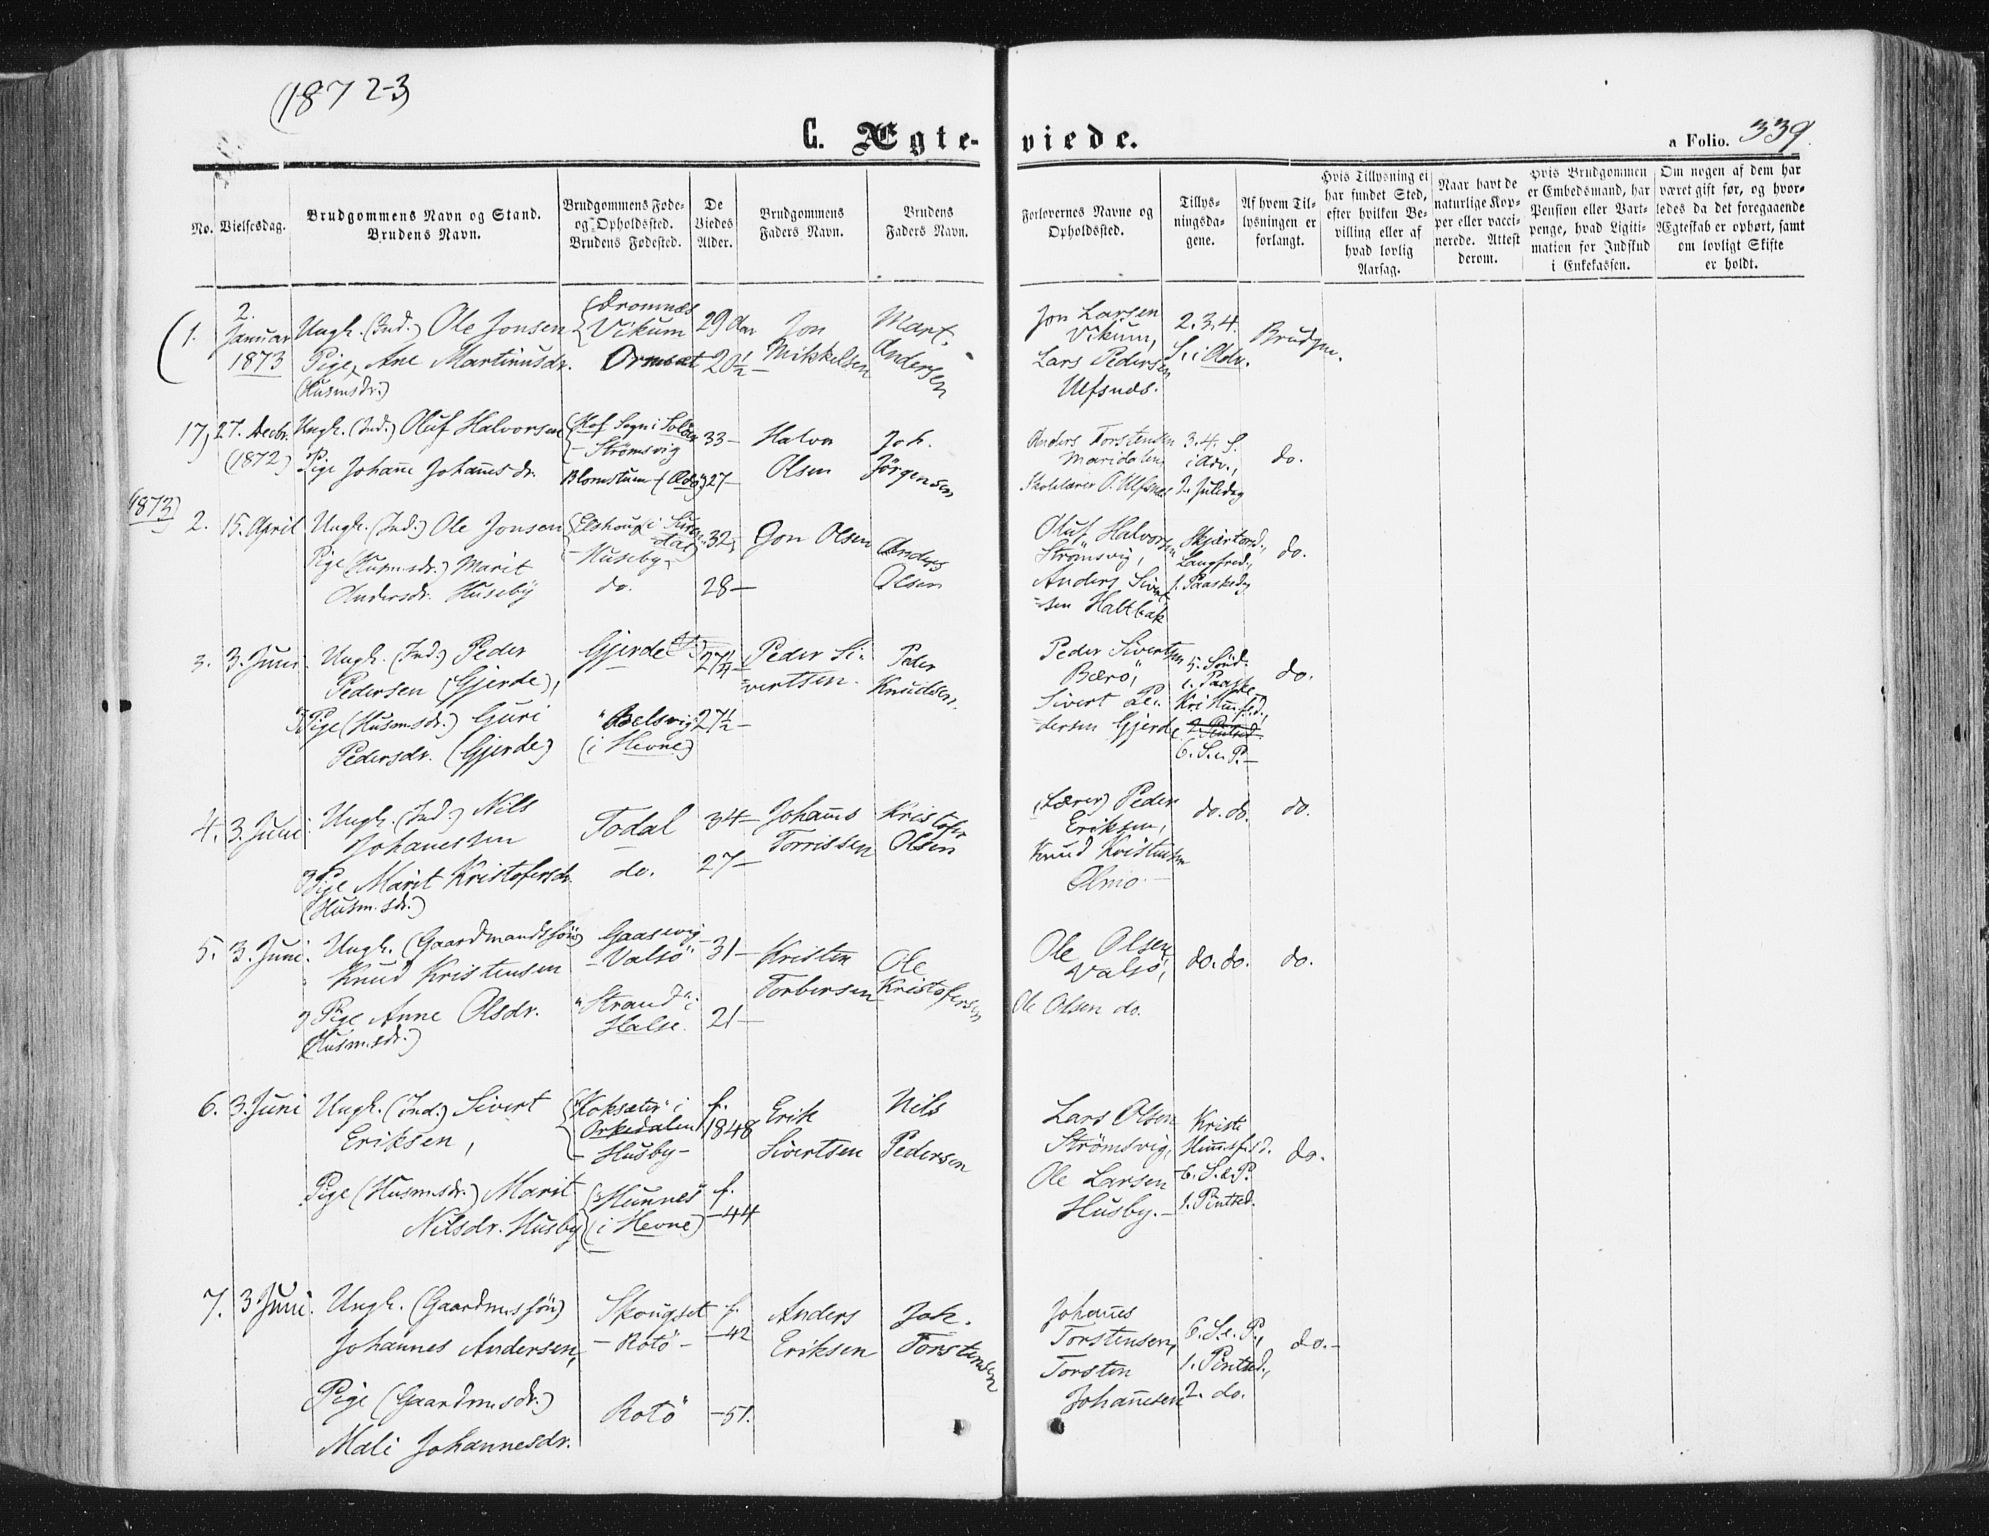 (1872-3)
C. Ægte- viede. a Folio. 339.
No.
Vielsesdag.
Brudgommens Navn og Stand.
Brudens Navn.
Brudgommens Føde-
og Opholdssted.
Brudens Fødested.
De
Viedes
Alder.
Brudgommens
Faders Navn.
Brudens
Faders Navn.
Forlovernes Navne og
Opholdssted.
Tillys-
ningsda-
gene.
Af hvem Til-
lysningen er
forlangt.
Hvis Tillysning ei
har fundet Sted,
efter hvilken Be-
villing eller af
hvad lovlig
Aarsag.
Naar havt de
naturlige Kop-
per eller vacci-
nerede. Attest
derom.
Hvis Brudgommen
er Embedsmand, har
Pension eller Vart-
penge, hvad Ligiti-
mation for Indskud
i Enkekassen.
Om nogen af dem har
været gift før, og hvor-
ledes da det foregaaende
Ægteskab er ophørt, samt
om lovligt Skifte
er holdt.
1. 2. Januar 1873
Ungk. (Ind.) Ole Jonsen
Pige, Ane Martinusdr.
(Husmsdr.)
Dromnæs
Vikum
Ormsæt
29 Aar
20½ —
Jon
Mikkelsen
Mart.
Andersen
Jon Larsen
Vikum,
Lars Pedersen
Ulfsnæs.
2. 3. 4.
S. i Adv.
Brudgm.
17, 27. Decbr. (1872)
Ungk. (Ind.) Oluf Halvorsen
Pige Johañe Johañsdr.
(Hof Sogn i Solör
- Strömsvig
Blomstum - (Ædö)
33 —
27 —
Halvor
Olsen
Joh.
Jörgensen
Anders Torstensen
Maridalen,
Skolelærer O. Ulfsnæs
3. 4. S.
i Adv.,
2. Juledag
do.
(1873)
2. 15. April
Ungk. (Ind.) Ole Jonsen
Pige (Husmsdr.) Marit
Andersdr. Huseby
Elshoug i Suren-
dal
- Huseby -
do.
32,
28 —
Jon Olsen
Anders
Olsen
Oluf Halvorsen
Strömsvig,
Anders Sivert-
sen Haltbak
Skjærtord.,
Langfred.,
1. Paaskedg
do.
3. 3. Juni
Ungk. (Ind.) Peder
Pedersen (Gjerde),
Pige (Husmsdr.) Guri
Pedersdr. (Gjerde)
Gjerde
"Belsvig"
(i Hevne)
27¼ —
27½ —
Peder Si-
vertsen.
Peder
Knudsen.
Peder Sivertsen
Bærö,
Sivert Pe-
dersen Gjerde
5. Sönd.
e. Paaske
Kri Himfrd.,
2. Pintsd.
6. S. e. P. —
do.
4. 3. Juni
Ungk. (Ind.) Nils
Johanessen
Pige Marit Kristofersdr.
(Husm.sdr.)
Todal
do.
34 —
27 —
Johañs
Torrissen
Kristofer
Olsen
(Lærer) Peder
Eriksen,
Knud Kristensen
Almo. —
do. do.
do.
5. 3. Juni.
Ungk. (Gaardmandssön)
Knud Kristensen
Pige Anne Olsdr.
(Husm.sdr.)
Gaasevig
- Valsö
"Strand" i
Halse.
31 —
21 —
Kristen
Torbersen
Ole
Kristofersen
Ole Olsen
Valsö,
Ole Olsen do.
do. do.
do.
6. 3. Juni
Ungk. (Ind.) Sivert
Eriksen,
Pige (Husmsdr.) Marit
Nilsdr. Husby
"Koksæter" i
Orkedalen
- Husby -
"Hunnes"
(i Hevne)
f.
1848
f.
- 44
Erik
Sivertsen
Nils
Pedersen
Lars Olsen
Strömsvig,
Ole Larsen
Husby. —
Kristi
Himmsfrd.
6. S. e. P.
1. Pintsd.
do.
7. 3 Juni.
Ungk. (Gaardmssön)
Johannes Andersen,
Pige (Gaardmsdr.)
Mali Johannesdr.
Skougset
- Rotö -
Rotö
f.
- 42
- 51.
Anders
Eriksen
Joh.
Torstensen
Johañes
Torstensen,
Torsten
Johañesen
6. S. e. P.,
1. Pintsd.,
2. do.
do. —